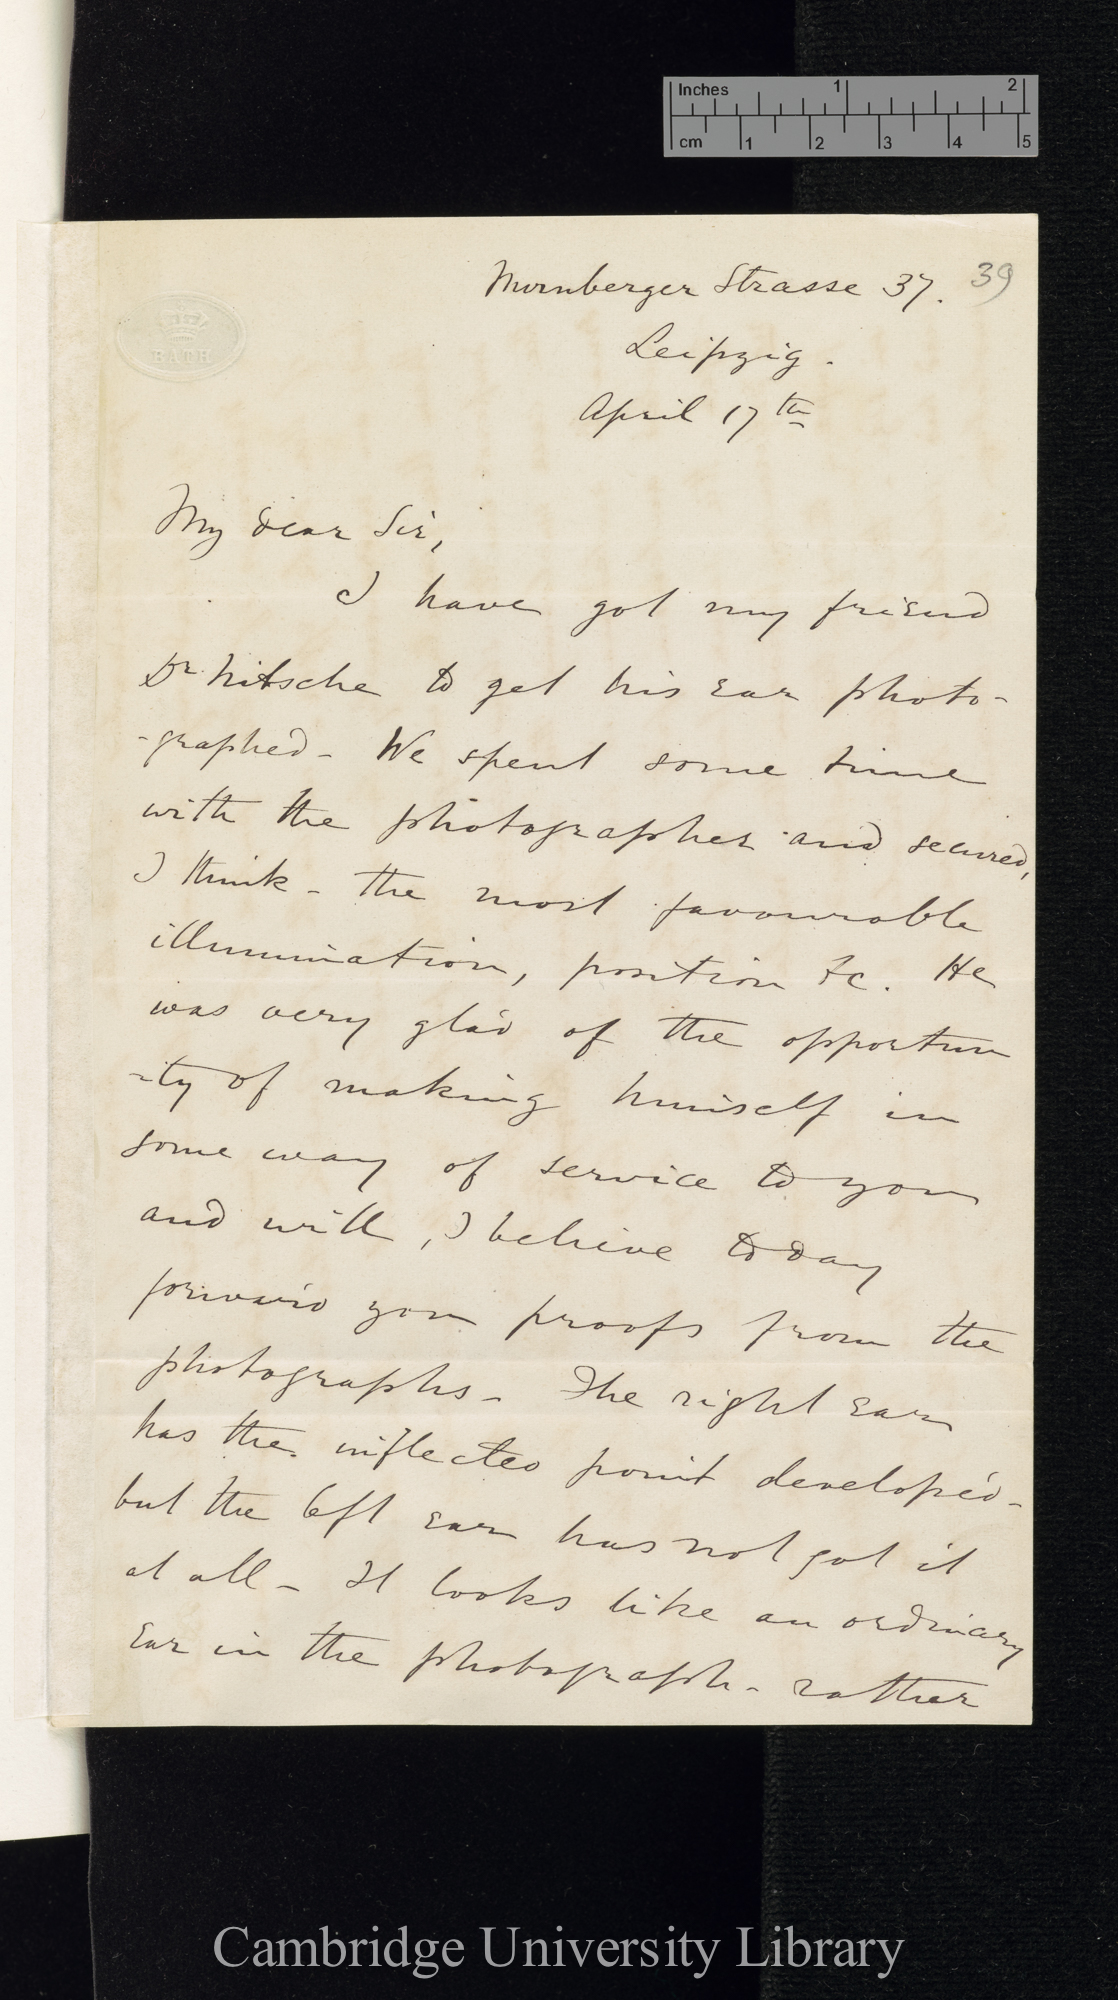 Inches 1 2
cm 1 2 3 4 5
Nurnberger Strasse 37. 39
Leipzig.
April 17th
BATH
My dear Sir,
I have got my friend
Dr Nitsche to get his ear photo-
-graphed - We spent some time
with the photographer and secured,
I think - the most favourable
illumination, position &c. He
was very glad of the opportun
-ity of making himself in
some way of service to you
and will, I believe today
forward you proofs from the
photographs - The right ear
has the inflected point developed -
but the left ear has not got it
at all - It looks like an ordinary
ear in the photograph - rather
Cambridge University Library